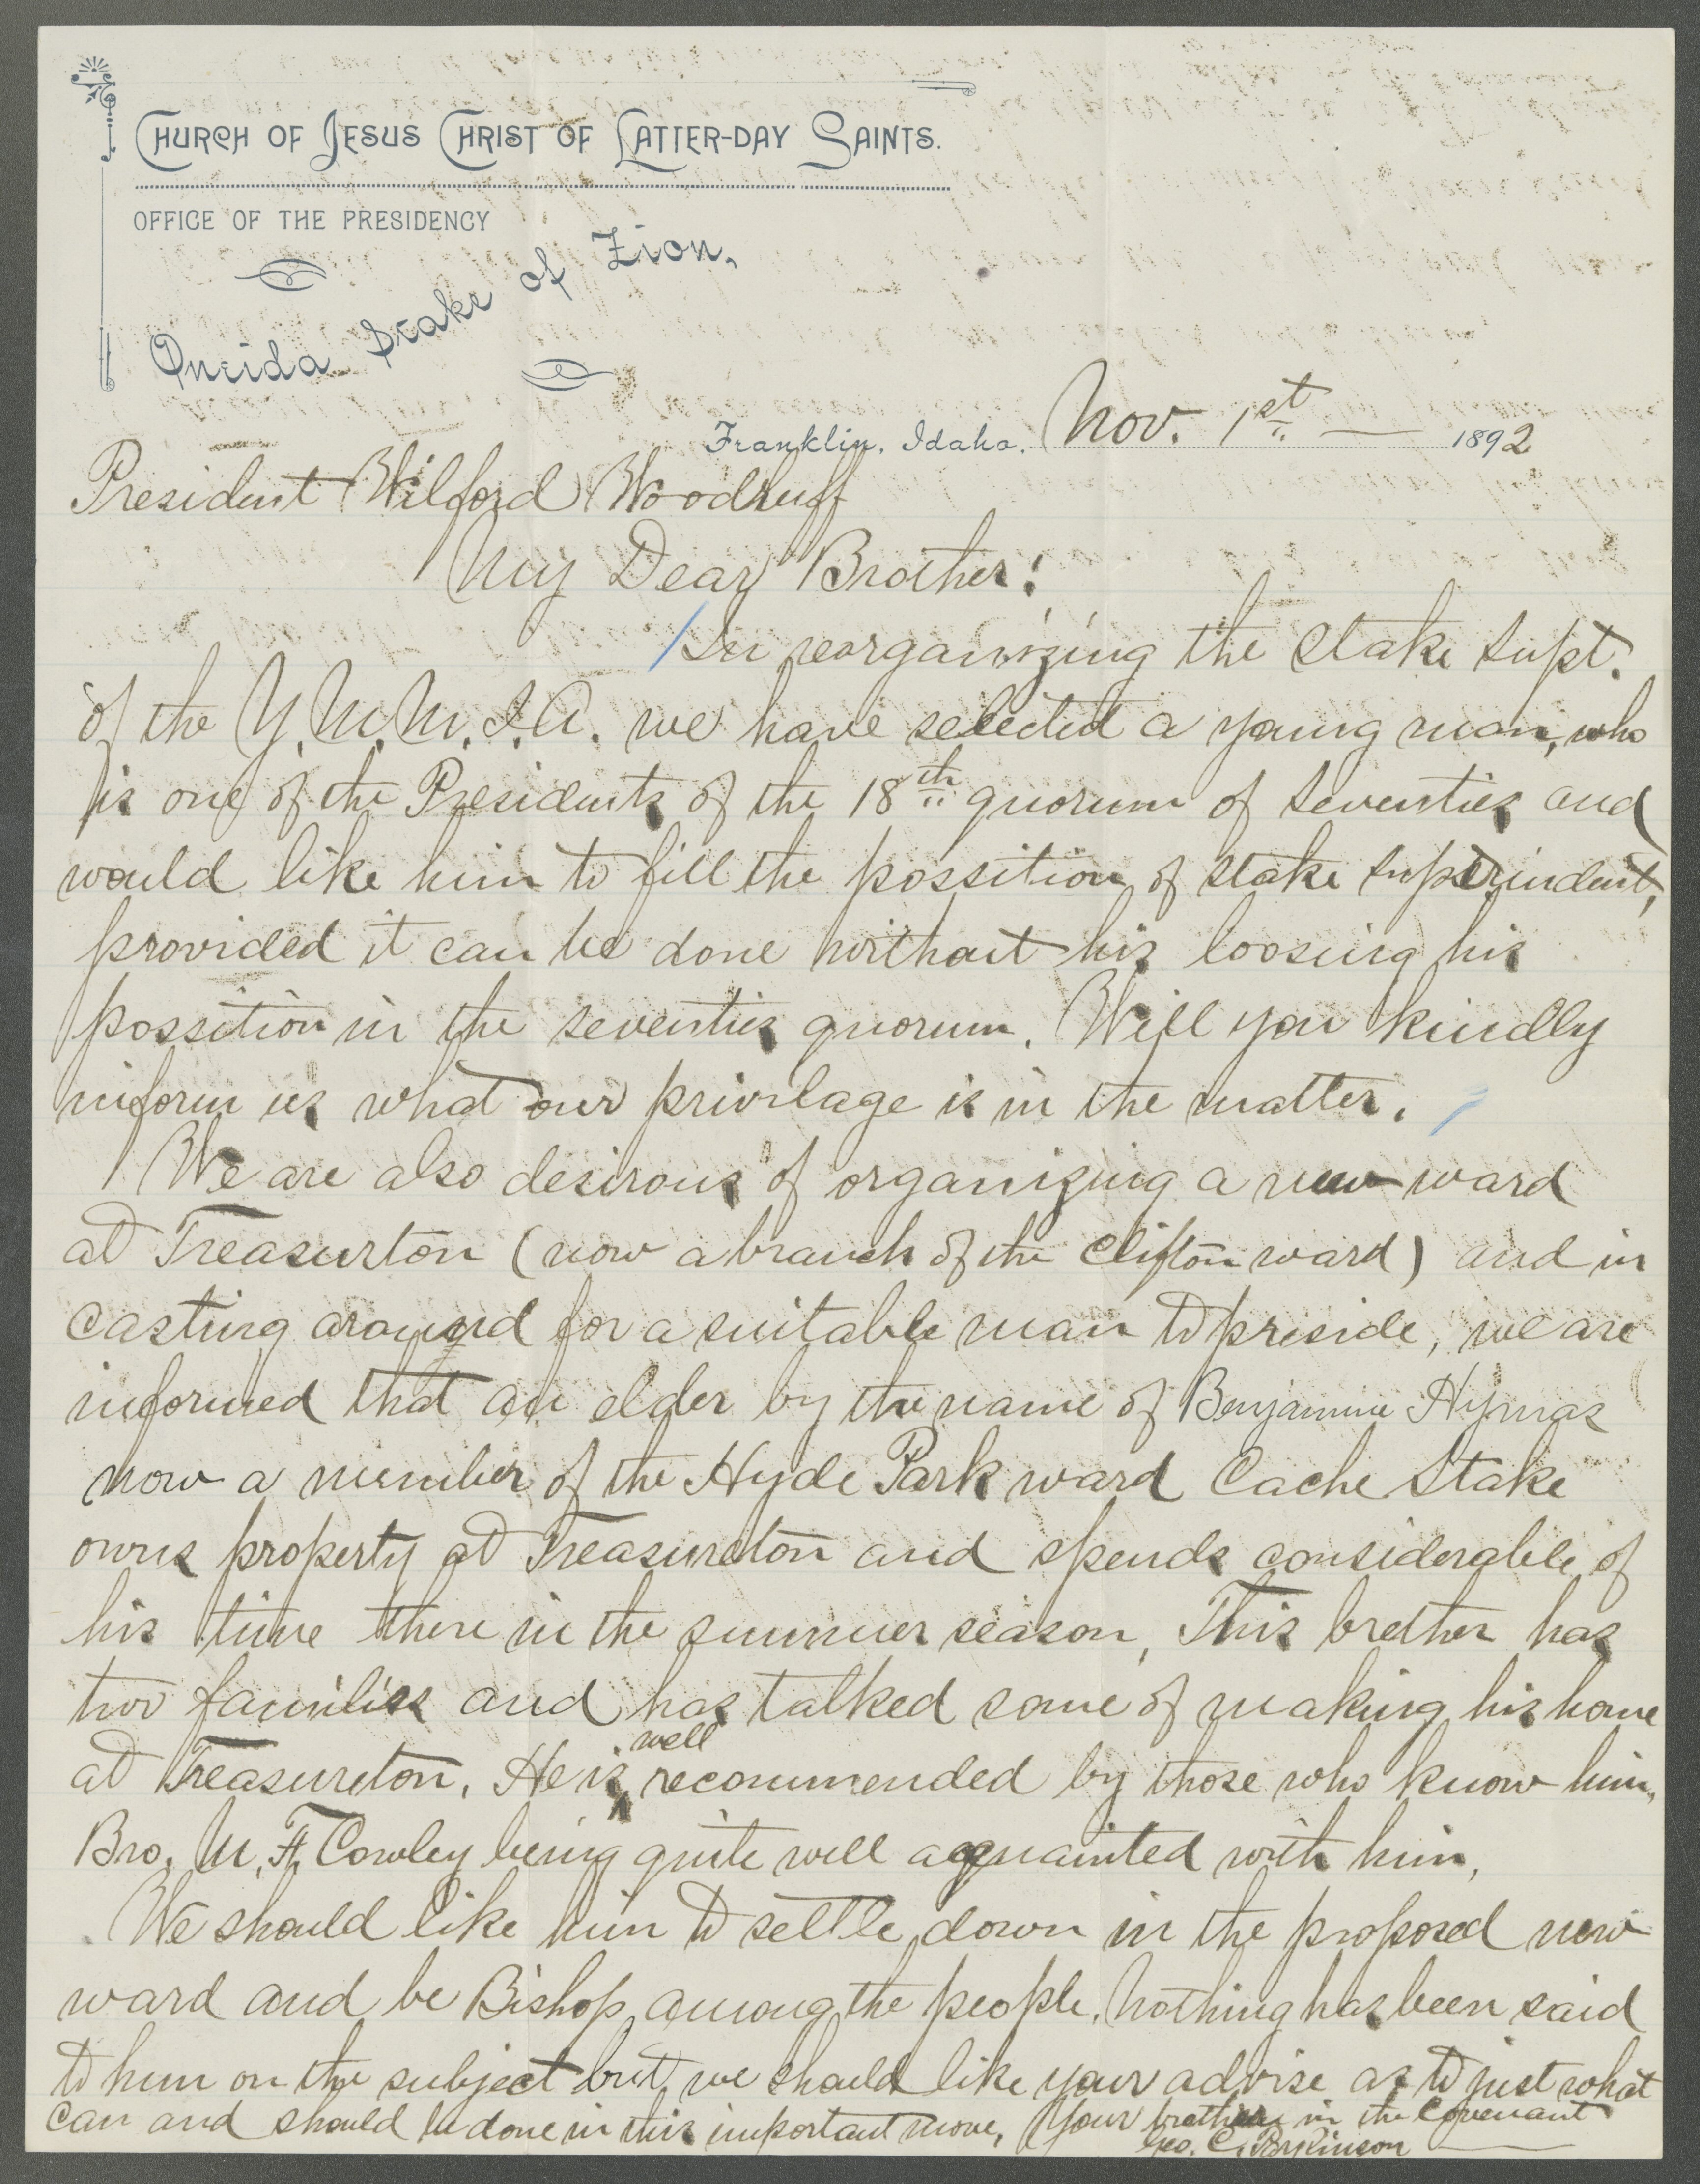 CHURCH OF JESUS CHRIST OF LATTER-DAY SAINTS.
OFFICE OF THE PRESIDENCY
Oneida Stake of Zion,
Franklin, Idaho, Nov. 1st 1892
President Wilford Woodruff
My Dear Brother:
In reorganizing the Stake Supt.
of the Y.M.M.I.A. we have selected a young man, who
is one of the Presidents of the 18th quorum of Seventies and
would like him to fill the possition of Stake Superindent,
provided it can be done without his loosing his
possition in the seventies quorum. Will you kindly
inform us what our privilage is in the matter.
We are also desirous of organizing a new ward
at Treasurton (now a branch of the Clifton ward) and in
casting around for a suitable man to preside, we are
informed that an elder by the name of Benjamine Hymas
now a member of the Hyde Park ward Cache Stake
owns property at Treasureton and spends considerable of
his time there in the summer season, This brother has
two families and has talked some of making his home
at Treasureton. He is well recommended by those who know him,
Bro. M. F. Cowley being quite well acquainted with him,
We should like him to settle down in the proposed new
ward and be Bishop among the people. Nothing has been said
to him on the subject but we should like your advise as to just what
can and should be done in this important move, Your brother in the Covenant
Geo. C. Parkinson